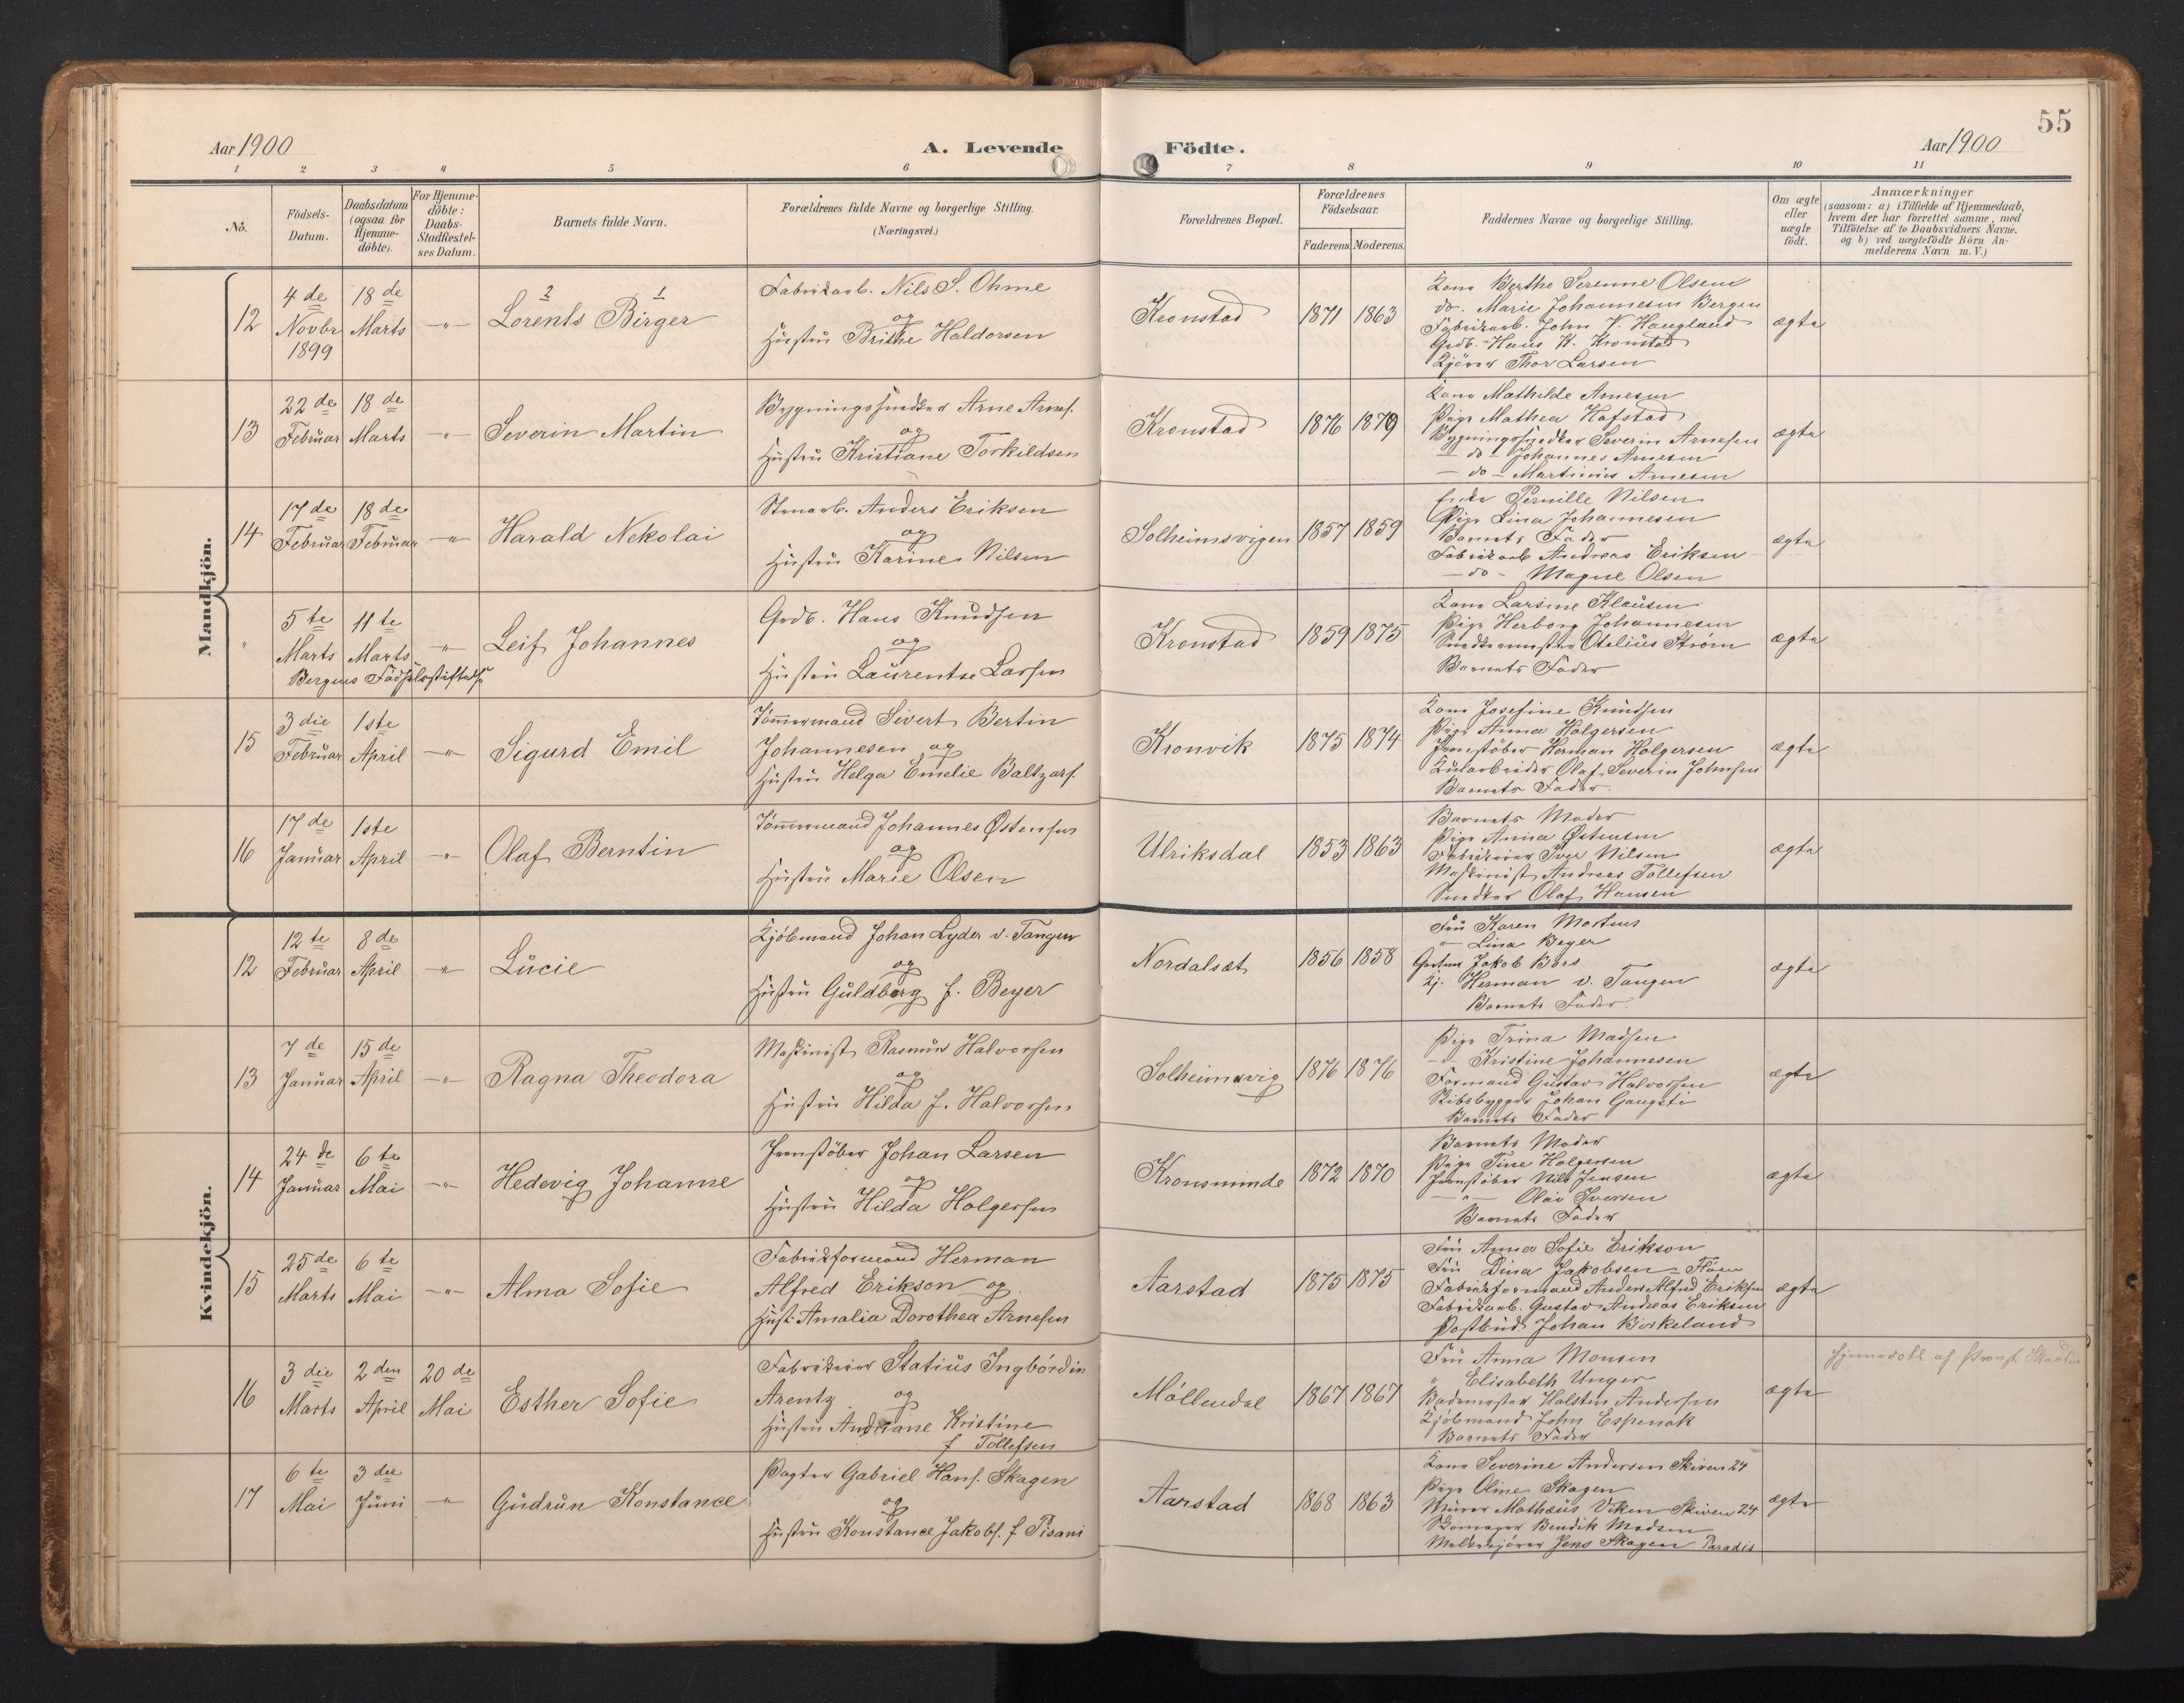 55
Aar 1900
A. Levende
Födte.
Aar 1900
1 2 3 4 5 6 7 8 9 10 11
No.
Födsels-
Datum.
Daabsdatum
(ogsaa for
Hjemme-
döbte).
For Hjemme-
döbte:
Daabs-
Stadfæstel-
ses Datum.
Barnets fulde Navn.
Forældrenes fulde Navne og borgerlige Stilling.
(Næringsvei.)
Forældrenes Bopæl.
Forældrenes
Födselsaar.
Faderens. Moderens.
Faddernes Navne og borgerlige Stilling.
Om ægte
eller
uægte
födt.
Anmærkninger
(saasom: a) i Tilfælde af Hjemmedaab,
hvem der har forrettet samme, med
Tilföielse af to Daabsvidners Navne.
og b) ved uægtefödte Börn An-
melderens Navn m. V.)
Mandkjön.
12
4 de
Novbr
1899
18 de
Marts
-"-
2 1
Lorents Birger
Fabrikarb. Nils S. Ohme
og
Hustru Brithe Haldorsen
Kronstad
1871 1863
Kone Berthe Serenne Olsen
do. Marie Johannesen Bergen
Fabrikarb. John V. Haugland
Grdb. Hans K. Kronstad
Kjører Thor Larsen
ægte
13
22 de
Februar
18 de
Marts
-"-
Severin Martin
Bygningssnedker Arne Arnes.
og
Hustru Kristiane Torkildsen
Kronstad
1876 1879
Kone Mathilde Arnesen
Pige Mathea Hafstad
Bygningssnedker Severin Arnesen
- do - Johannes Arnesen
- do - Martinius Arnesen
ægte
14
17 de
Februar
18 de
Februar
-"-
Harald Nekolai
Stenarb. Anders Eriksen
og
Hustru Karine Nilsen
Solheimsvigen
1857 1859
Enke Pernille Nilsen
Pige Lina Johannesen
Barnets Fader
Fabrikarb Andreas Eriksen
- do - Magne Olsen
ægte
"
5 te
Marts
11 te
Marts
Bergens Fødselsstiftelse
-"-
Leif Johannes
Grdb. Hans Knudsen
og
Hustru Laurentse Larsen
Kronstad
1859 1875
Kone Larsine Klausen
Pige Herborg Johannesen
Snedkermester Otelius Strøm
Barnets Fader
ægte
15
3 die
Februar
1ste
April
-"-
Sigurd Emil
Tömmermand Sivert Bertin
Johannesen og
Hustru Helga Emelie Baltzars.
Kronvik
1875 1874
Kone Josefine Knudsen
Pige Anna Holgersen
Jernstöber Herman Holgersen
Olaf Severin Johnsen
Barnets Fader.
ægte
16
17 de
Januar
1ste
April
-"-
Olaf Berntin
Tömmermand Johannes Østensen
og
Hustru Marie Olsen
Ulriksdal
1853 1863
Barnets Moder
Pige Anna Østensen
Fabrikeier Iver Nilsen
Maskinist Andreas Tollefsen
Snedker Olaf Hansen
ægte
Kvindekjön.
12
12 te
Februar
8 de
April
-"-
Lucie
Kjöbmand Johan Lyder v. Tangen
og
Hustru Guldborg f. Beyer
Nordalsæt
1856 1858
Fru Karen Martens
" Lina Beyer
Gartner Jakob Børs
Kj. Herman v. Tangen
Barnets Fader
ægte
13
7 de
Januar
15 de
April
-"-
Ragna Theodora
Maskinist Rasmus Halvorsen
og
Hustru Hilda f. Halvorsen
Solheimsvig
1876 1876
Pige Trina Madsen
-"- Kristine Johannesen
Formand Gustav Halvorsen
Skibsbygger Johan
Barnets Fader
ægte
14
24 de
Januar
6 te
Mai
-"-
Hedevig Johanne
Jernstöber Johan Larsen
og
Hustru Hilda Holgersen
Kronsminde
1872 1870
Barnets Moder
Pige Tine Holgersen
Jernstöber Nils Jensen
-"- Olai Iversen
Barnets Fader
ægte
15
25 de
Marts
6 te
Mai
-"-
Alma Sofie
Fabrikformand Herman
Alfred Erikson og
Hust. Amalia Dorothea Arnesen
Aarstad
1875 1875
Fru Anna Sofie Erikson
Fru Dina Jakobsen
Fabrikformand Anders Alfred Eriksen
Fabrikarb. Gustav Andreas Eriksen
Postbud Johan Birkeland
ægte
16
3 die
Marts
2 den
April
20 de
Mai
Esther Sofie
Fabrikeier Statius Ingbördin
Arentz og
Hustru Andriane Kristine
f Tollefsen
Möllendal
1867 1867
Fru Anna Monsen
" Elisabeth Unger
Bademester Halsten Andersen
Kjöbmand John Espenak
Barnets Fader
ægte
Hjemmedøbt af Provst
17
6 te
Mai
3 die
Juni
-"-
Gudrun Konstance
Pagter Gabriel Hans. Skagen
og
Hustru Konstance Jakobs. f Pisani
Aarstad
1868 1863
Kone Severine Andersen Skiven 24
Pige Oline Skagen
Murer Mathæus Viken Skiven 24
Skomager Bendik Madsen
Melkekjører Jens Skagen Paradis
ægte